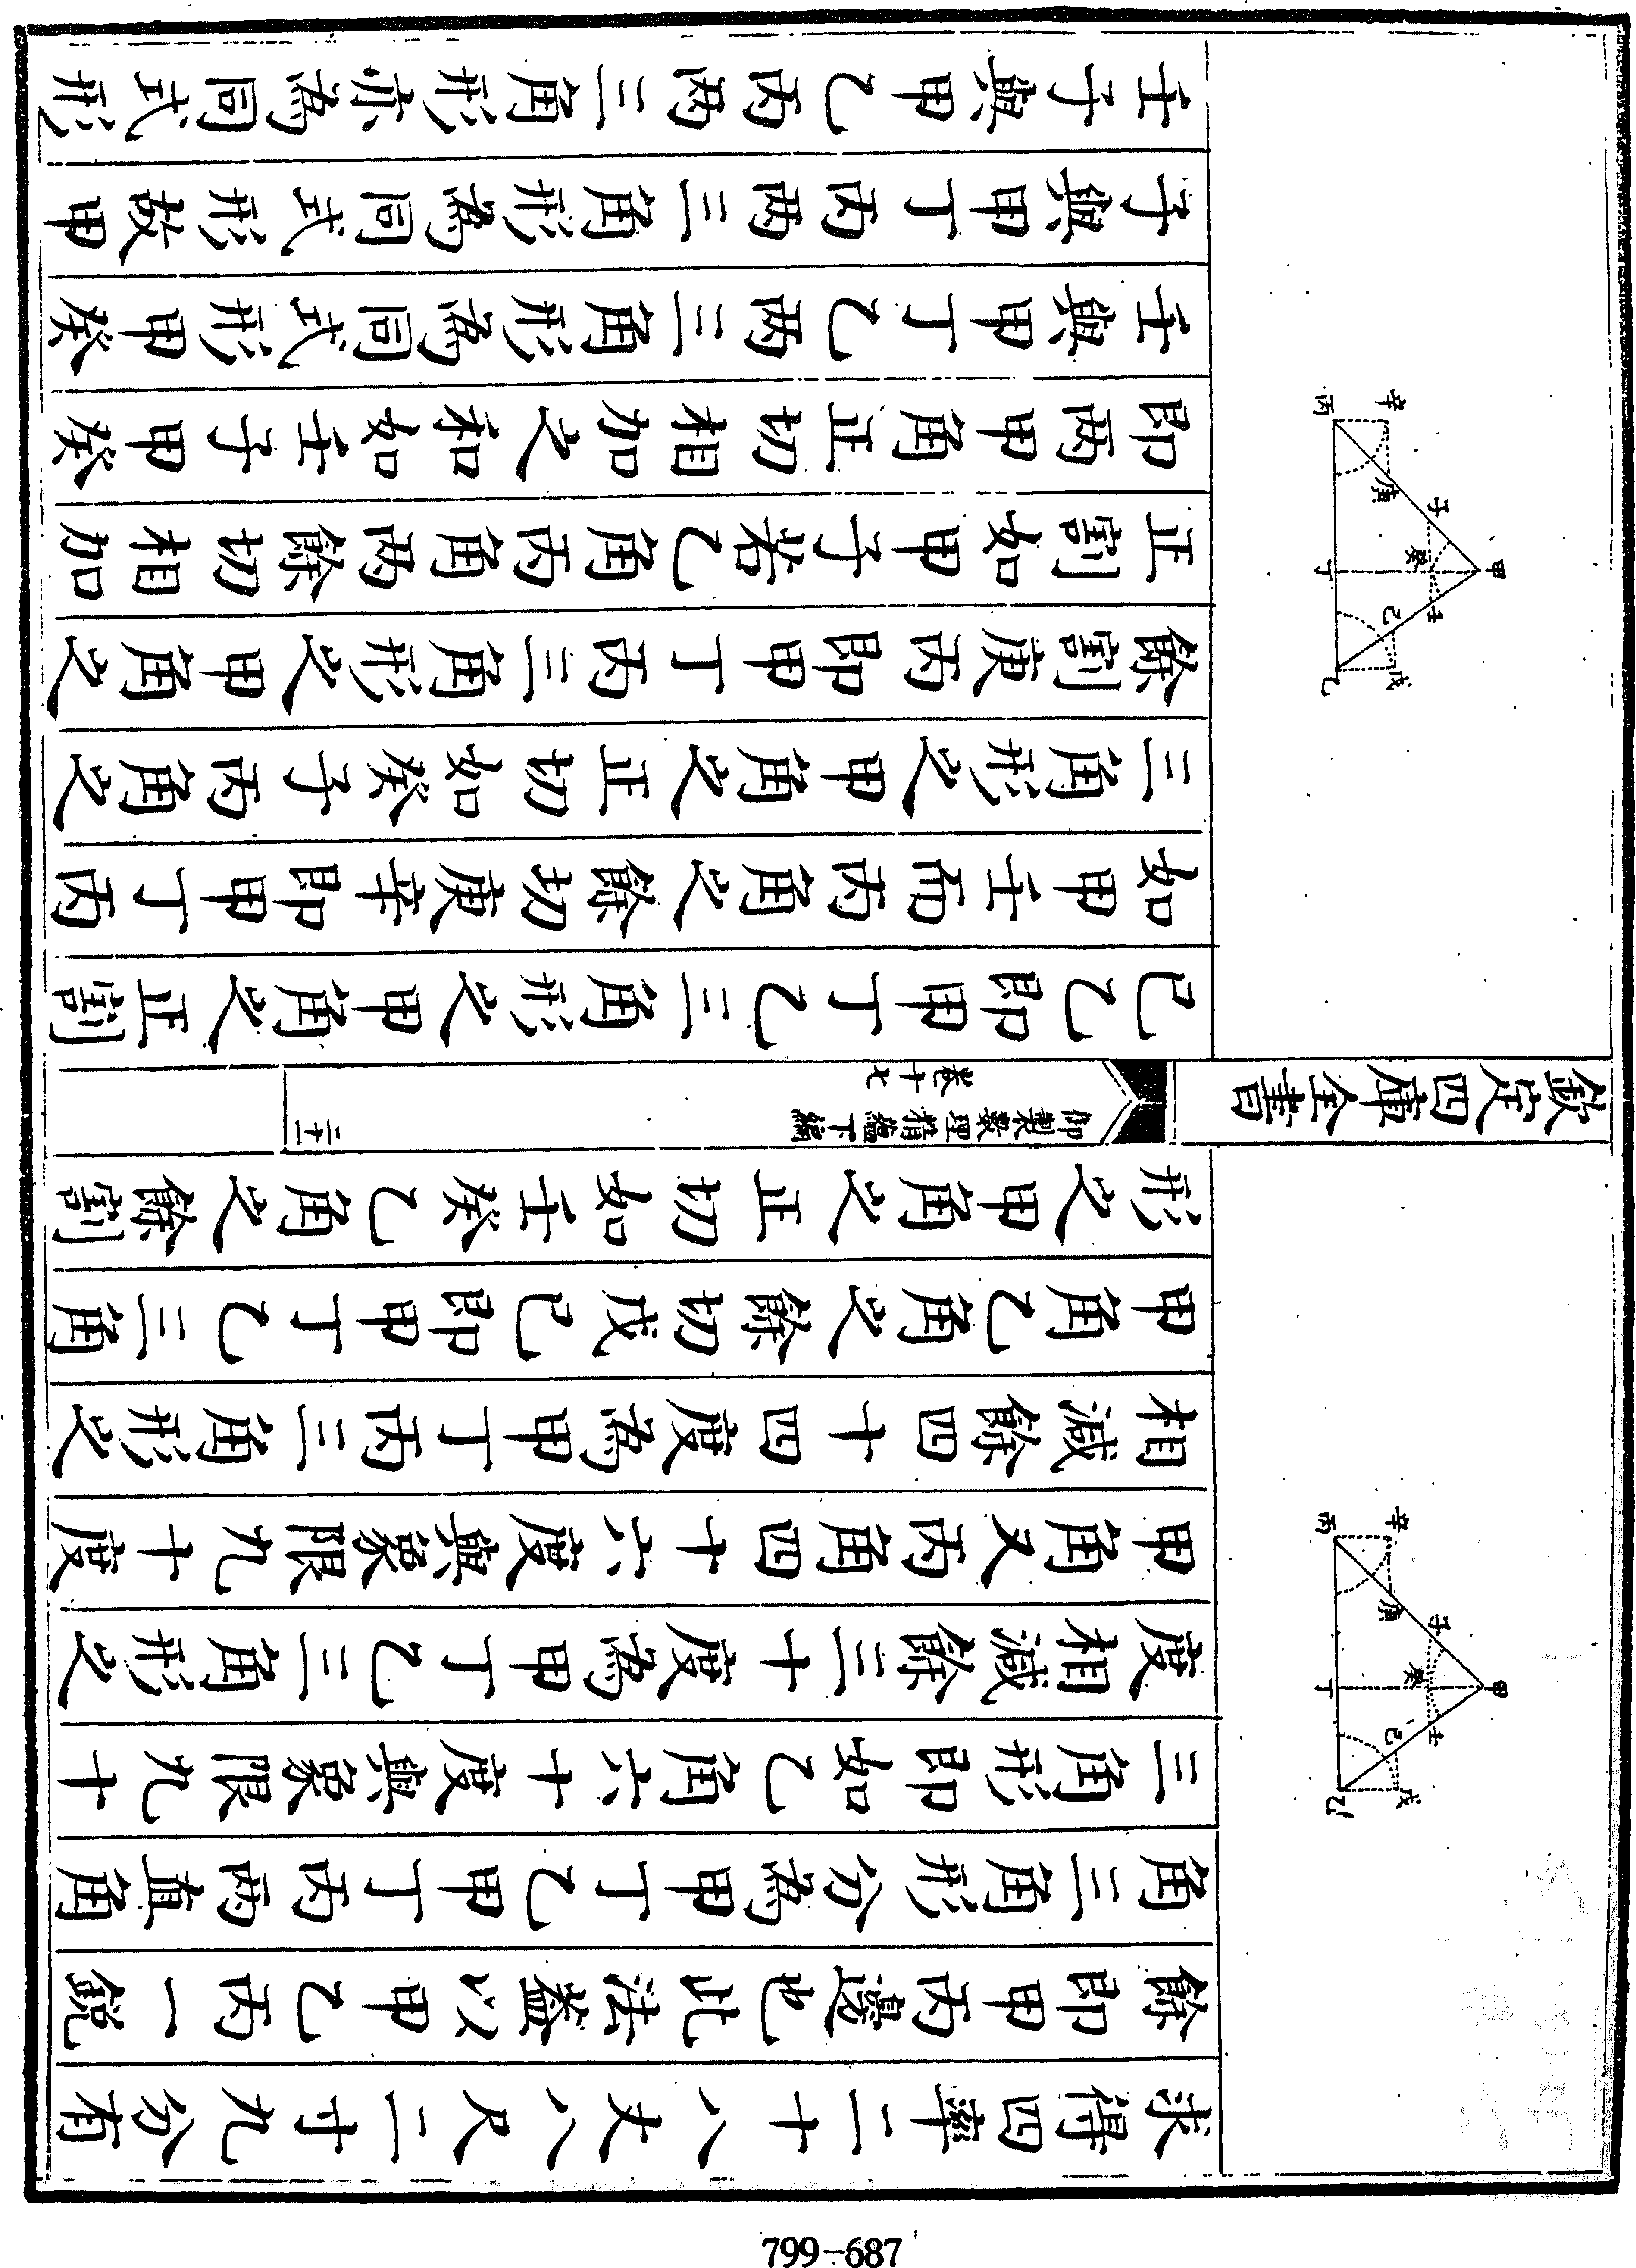 求得四率二十八丈八尺二寸九分有
餘即甲丙邊也此法葢以甲乙丙一銳
角三角形分為甲丁乙甲丁丙兩直角
三角形即如乙角六十度與象限九十
度相減餘三十度為甲丁乙三角形之
甲角又丙角四十六度與象限九十度
相減餘四十四度為甲丁丙三角形之
甲角乙角之餘切戊己即甲丁乙三角
形之甲角之正切如壬癸乙角之餘割
甲
子
壬
癸
庚
己
辛
戊
丙
丁
乙
欽定四庫全書
御製數理精藴下編
卷十七
己乙即甲丁乙三角形之甲角之正割
如甲壬而丙角之餘切庚辛即甲丁丙
三角形之甲角之正切如癸子丙角之
餘割庚丙即甲丁丙三角形之甲角之
正割如甲子若乙角丙角兩餘切相加
即兩甲角正切相加之和如壬子甲癸
壬與甲丁乙兩三角形為同式形甲癸
子與甲丁丙兩三角形為同式形故甲
壬子與甲乙丙兩三角形亦為同式形
甲
子
壬
癸
庚
己
辛
戊
丙
丁
乙
799-687